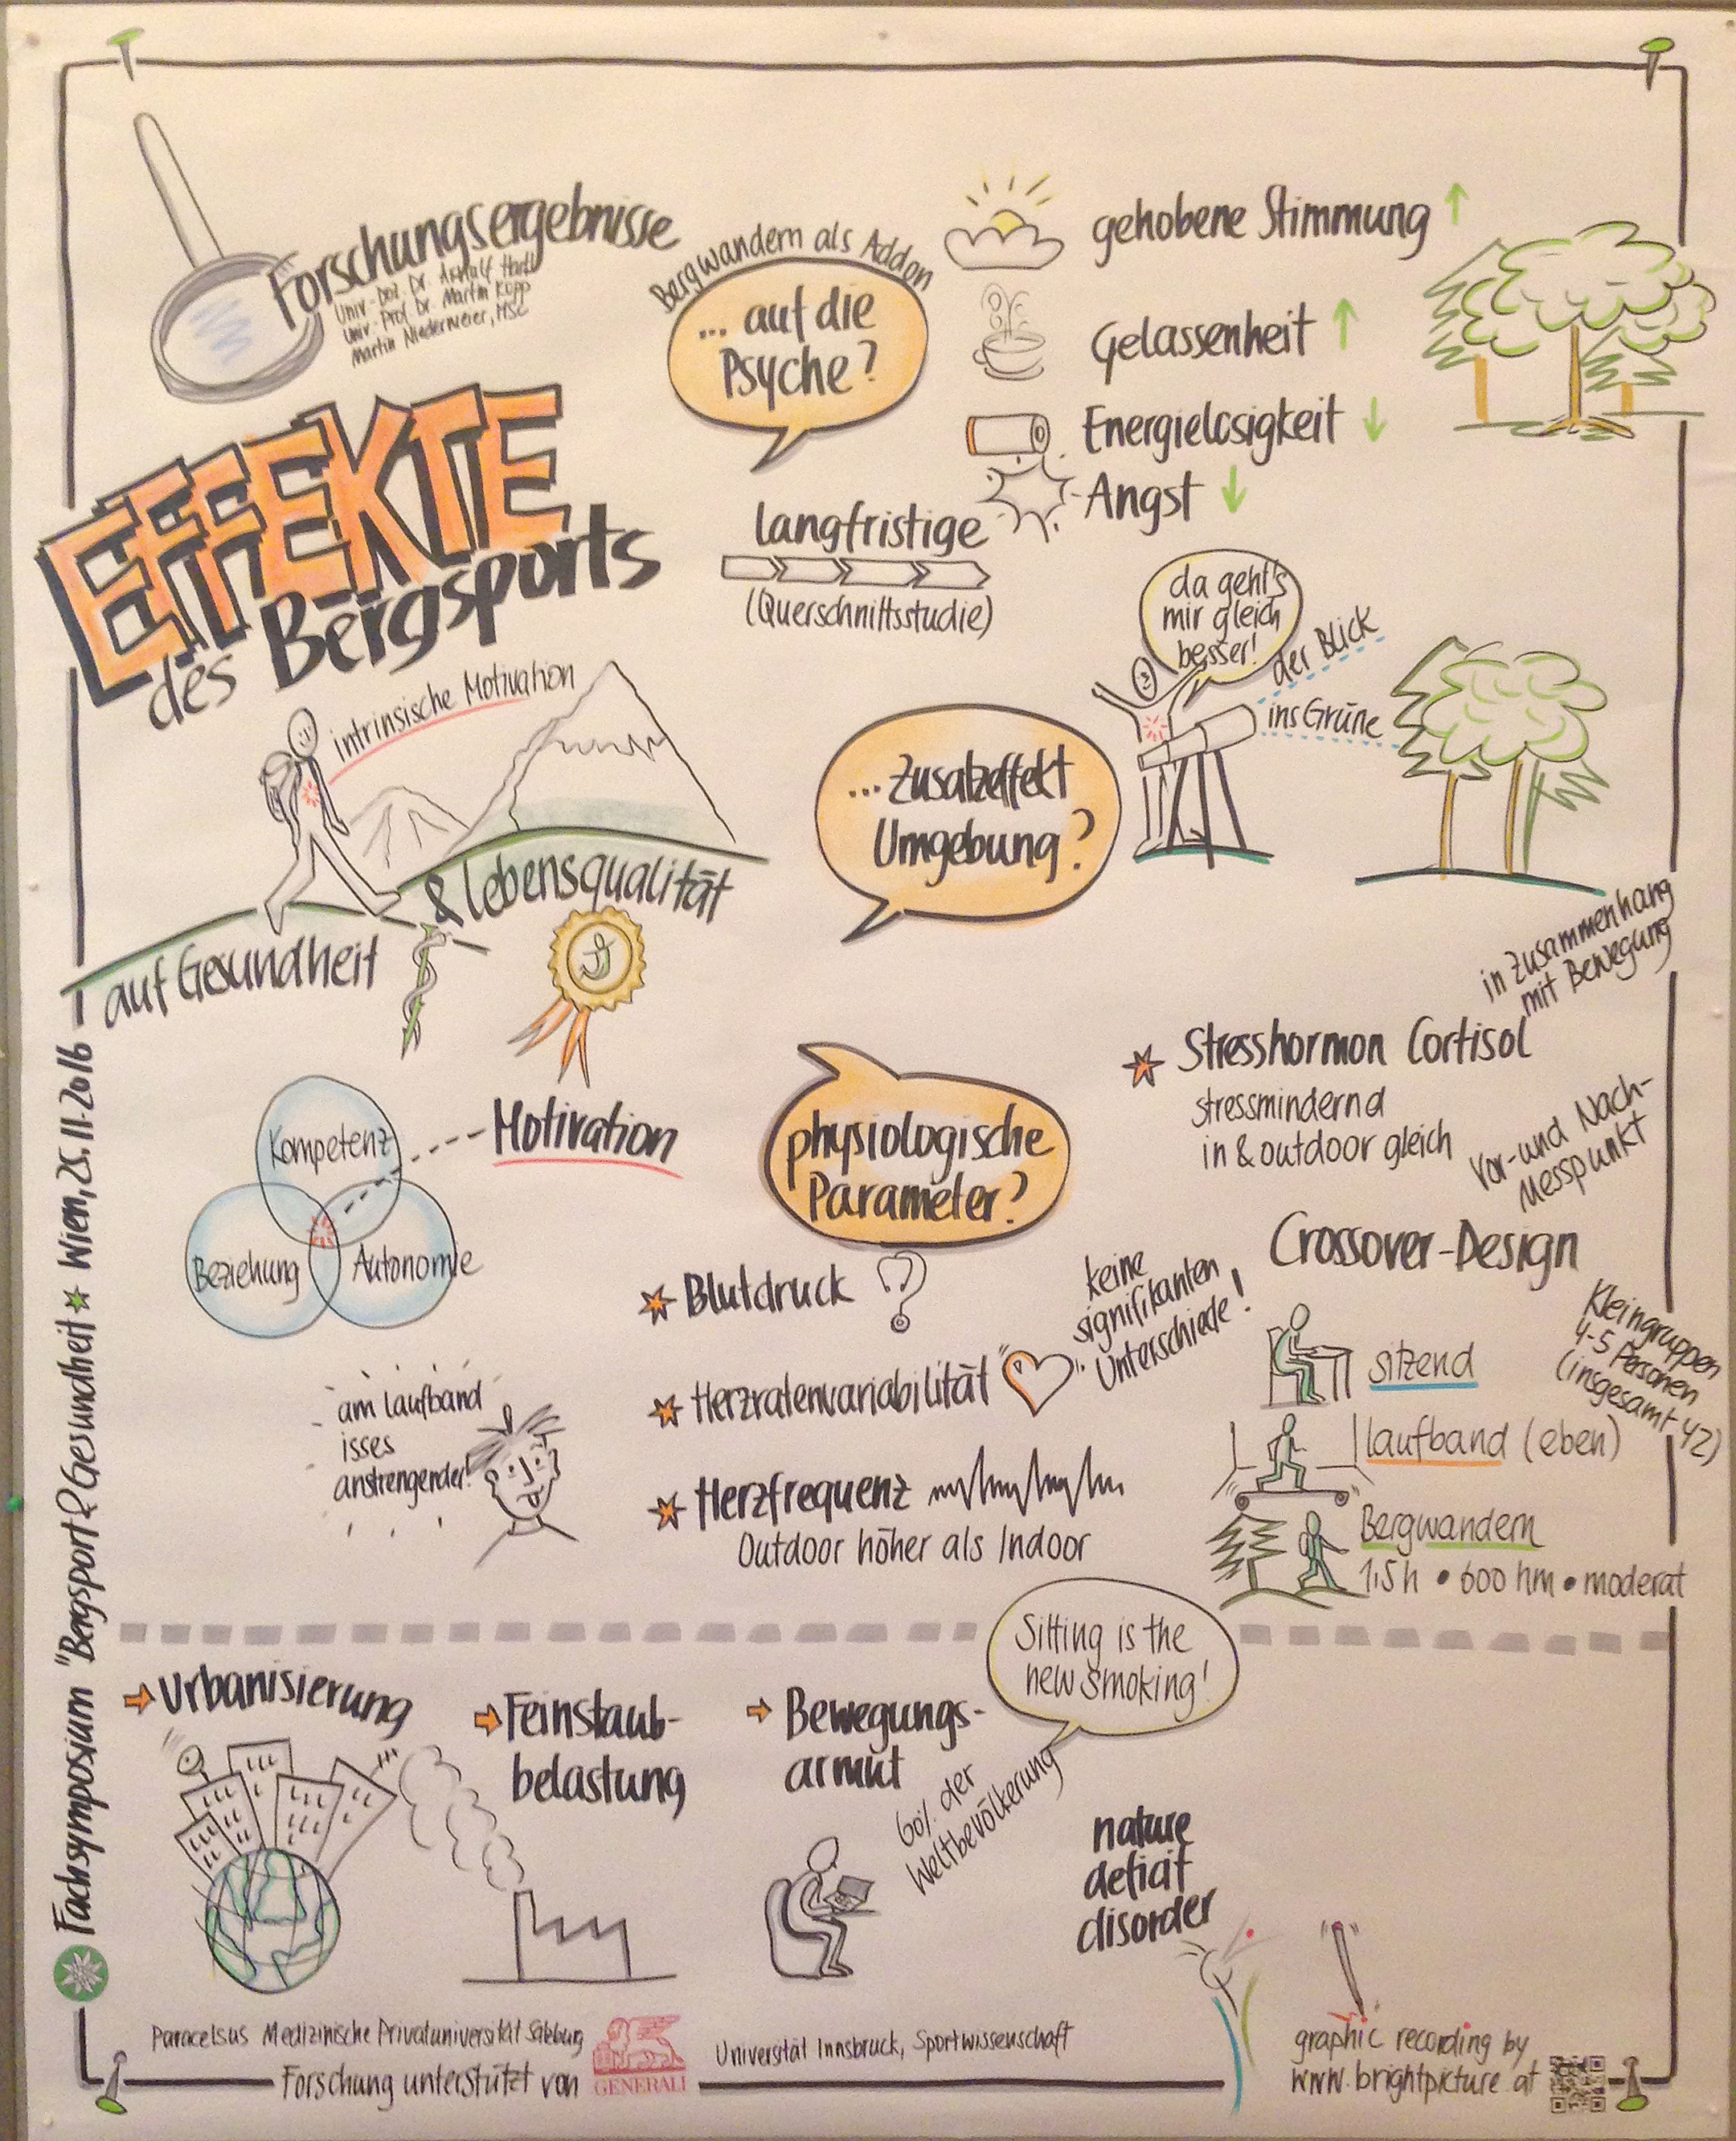 Forschungsergebnisse
Univ.-Doz. Dr. Arnulf Hartl
Univ.-Prof. Dr. Martin Kopp
Martin Niedermeier, MSc
EFFEKTE
des Bergsports
intrinsische Motivation
auf Gesundheit
& Lebensqualität
Bergwandern als Addon
... auf die
Psyche?
gehobene Stimmung ↑
Gelassenheit ↑
Energielosigkeit ↓
Angst ↓
langfristige
(Querschnittsstudie)
da geht's
mir gleich
besser!
der Blick
ins Grüne
... Zusatzeffekt
Umgebung?
Kompetenz
Beziehung
Autonomie
Motivation
physiologische
Parameter?
in Zusammenhang
mit Bewegung
Stresshormon Cortisol
stressmindernd
in & outdoor gleich
Vor- und Nach-
Messpunkt
Blutdruck
Herzratenvariabilität
keine
signifikanten
Unterschiede!
Herzfrequenz
Outdoor höher als Indoor
am Laufband
isses
anstrengender!
Crossover-Design
Kleingruppen
4-5 Personen
(insgesamt 42)
sitzend
Laufband (eben)
Bergwandern
1,5h • 600 hm • moderat
Urbanisierung
Feinstaub-
belastung
Bewegungs-
armut
60% der
Weltbevölkerung
Sitting is the
new smoking!
nature
deficit
disorder
Fachsymposium "Bergsport & Gesundheit" Wien, 25.11.2016
Paracelsus Medizinische Privatuniversität Salzburg
Universität Innsbruck, Sportwissenschaft
Forschung unterstützt von
GENERALI
graphic recording by
www.brightpicture.at